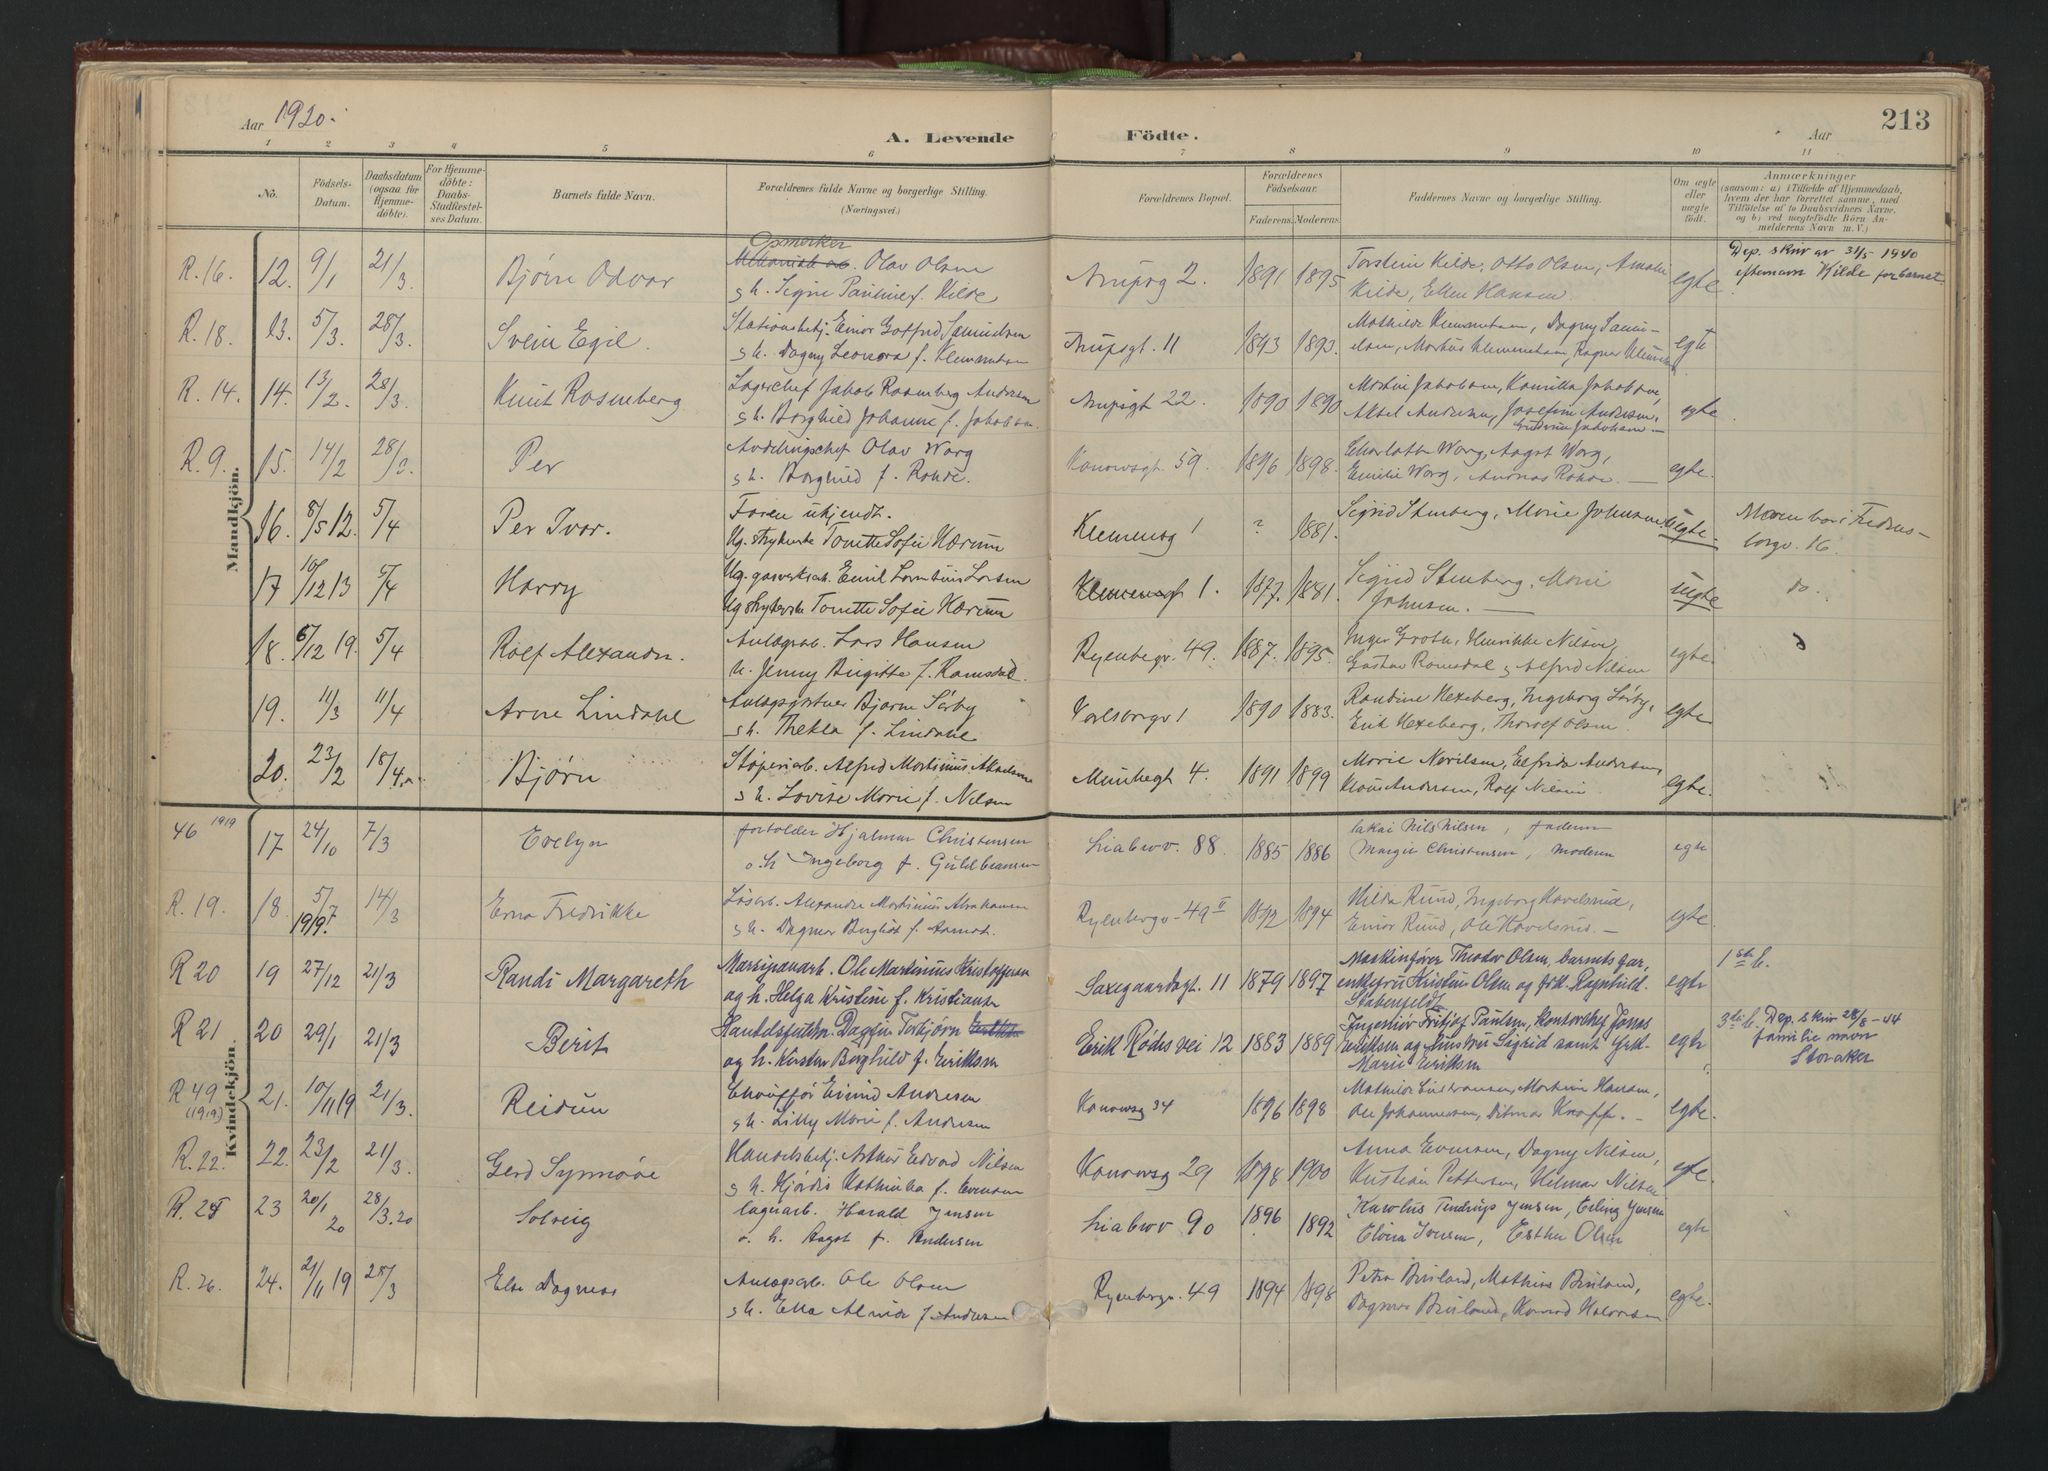 Aar 1920.
A. Levende Födte.
213
Aar
1 2 3 4 5 6 7 8 9 10 11
No.
Födsels-Datum.
Daabsdatum (ogsaa for Hjemmedöbte).
For Hjemmedöbte: Daabs-Stadfestelses Datum.
Barnets fulde Navn.
Forældrenes fulde Navne og borgerlige Stilling.
(Næringsvei.)
Forældrenes Bopæl.
Forældrenes Födselsaar.
Faderens. Moderens.
Faddernes Navne og borgerlige Stilling.
Om ægte eller uægte födt.
Anmærkninger
(saasom: a) i Tilfælde af Hjemmedaab, hvem der har forrettet samme, med Tilföielse af to Daabsvidners Navne, og b) ved uægtefödte Börn Anmelderens Navn m. V.)
Mandkjön.
R. 16. 12. 9/1 21/3. Bjørn Odvar Olav Olsen
og h. Signe Pauline f. Kilde
2. 1891 1895 Torstein Kilde, Otto Olsen, Amalie
Kilde, Ellen Hansen. egte
Dep. skriv av 31/5 1940
efternavn Kilde for barnet
R. 18. 13. 5/3. 28/3. Svein Egil. Stationsbetj. Einar Gotfred
og h. Dagny Leonora f.
11 1893 1893.
egte
R. 14. 14. 13/2. 28/3. Knut Rosenberg Lagerchef Jakob Rosenberg Andersen
og h. Borghild Johanne f. Jakobsen.
22. 1890 1890 Martin Jakobsen, Kamilla Jakobsen,
Aksel Andersen, Josefine Andersen,
Jakobsen. egte
R. 9. 15. 14/2 28/3. Per Avdelingschef Olav Warg
og h. Borghild f. Rohde.
Konowsgt. 59. 1896 1898. Charlotte Warg, Aagot Warg,
Emilie Warg, Andreas Rohde. egte.
16. 8/5 12. 5/4 Per Ivar. Faren ukjendt.
Ug. strykerske Tonette Sofie Hærum
Klemensg 1 ? 1881. Sigrid Stenberg, Marie Johnsen uegte.
Moren bor i Fredens-
borgv. 16.
17 10/12 13 5/4 Harry Ug. gasverksarb. Emil Larsen
Ug strykerske Tonette Sofie Hærum
Klemensgt 1. 1877. 1881. Sigrid Stenberg, Marie
Johnsen. uegte do.
18. 6/12 19. 5/4 Rolf Alexander. Anlægsarb. Lars Hansen
h. Jenny Birgitte f. Ramsdal.
Ryenbergv. 49. 1887. 1895. Inger Henrikke Nilsen,
Gustav Ramsdal og Alfred Nilsen egte
19. 11/3 11/4 Arne Lindahl Anlægsgartner Bjarne Sørby
og h. Thekla f. Lindahl
1 1890 1883. Hexeberg, Ingeborg Sørby,
Erik Hexeberg, Thorolf Olsen. egte
20. 23/2 18/4 Bjørn Støperiarb. Alfred Martinius
og h. Lovise Marie f. Nilsen
Munkegt 4. 1891 1899 Marie Elfrida Andersen,
Andersen, Rolf Nilsen. egte.
Kvindekjön.
46 1919 17 24/10 7/3 Evelyn forvalter Hjalmar Christensen
o. h Ingeborg f.
Liabrov. 88. 1885 1886 lakai Nils Nilsen, faderen
Margit Christensen, moderen egte
R. 19. 18. 5/7 1919. 14/3 Erna Fredrikke Løsarb. Martinius Abrahamsen
og h. Dagmar Bergliot f. Aamot.
Ryenbergv. 49 II 1892 1894 Hilda Rund, Ingeborg
Einar Rund, Ole egte
R 20 19 27/12 21/3 Randi Margareth Marsipanarb. Ole Martinius Kristoffersen
og h. Helga Kristine f. Kristiansen
Saxegaardsgt. 11 1879 1897 Maskinfører Theodor Olsen, barnets far,
enkefru Kristine Olsen og frk. Ragnhild
Stabenfeldt egte 1ste b.
R 21 20 29/1 21/3 Berit Handelsfuldm. Dagfin Torbjørn
og h. Kirsten Borghild f. Eriksen
Erik Rødes vei 12 1883 1889 Ingeniør Fritjof Paulsen, kontorchef Jonas
Eriksen og hustru Sigrid samt frk.
Marie Eriksen egte 3die b. Dep. skriv 28/8-44
familienavn
Storaker
R 49 (1919) 21. 10/11 19 21/3. Reidun Chauffør Eivind Andersen
og h. Lilly Marie f. Andersen
Konowsg 34 1896 1898 Mathilde Martine Hansen,
Ole Johannesen, Ditmar Knoff. egte.
R. 22. 22. 23/2 21/3. Gerd Synnøve Handelsbetj. Arthur Edvard Nilsen
og h. Hjørdis Kathinka f. Evensen
Konowsg 29 1898 1900 Anna Evensen, Dagny Nilsen,
Kristian Pettersen, Hilmar Nilsen egte.
R. 25 23 20/1 20 28/3.20 Solveig lagerarb. Harald Jensen
o. h. Aagot f. Andersen
Liabrov 90 1896 1892 Karolus Jensen, Erling Jensen
Iversen, Esther Olsen egte
R. 26. 24. 21/11 19 28/3 Else Dagmar Anlægsarb. Ole Olsen
og h. Ella Alvide f. Andersen
Ryenbergv. 49 1894 1898 Petra Mathias
Dagmar Konrad egte.